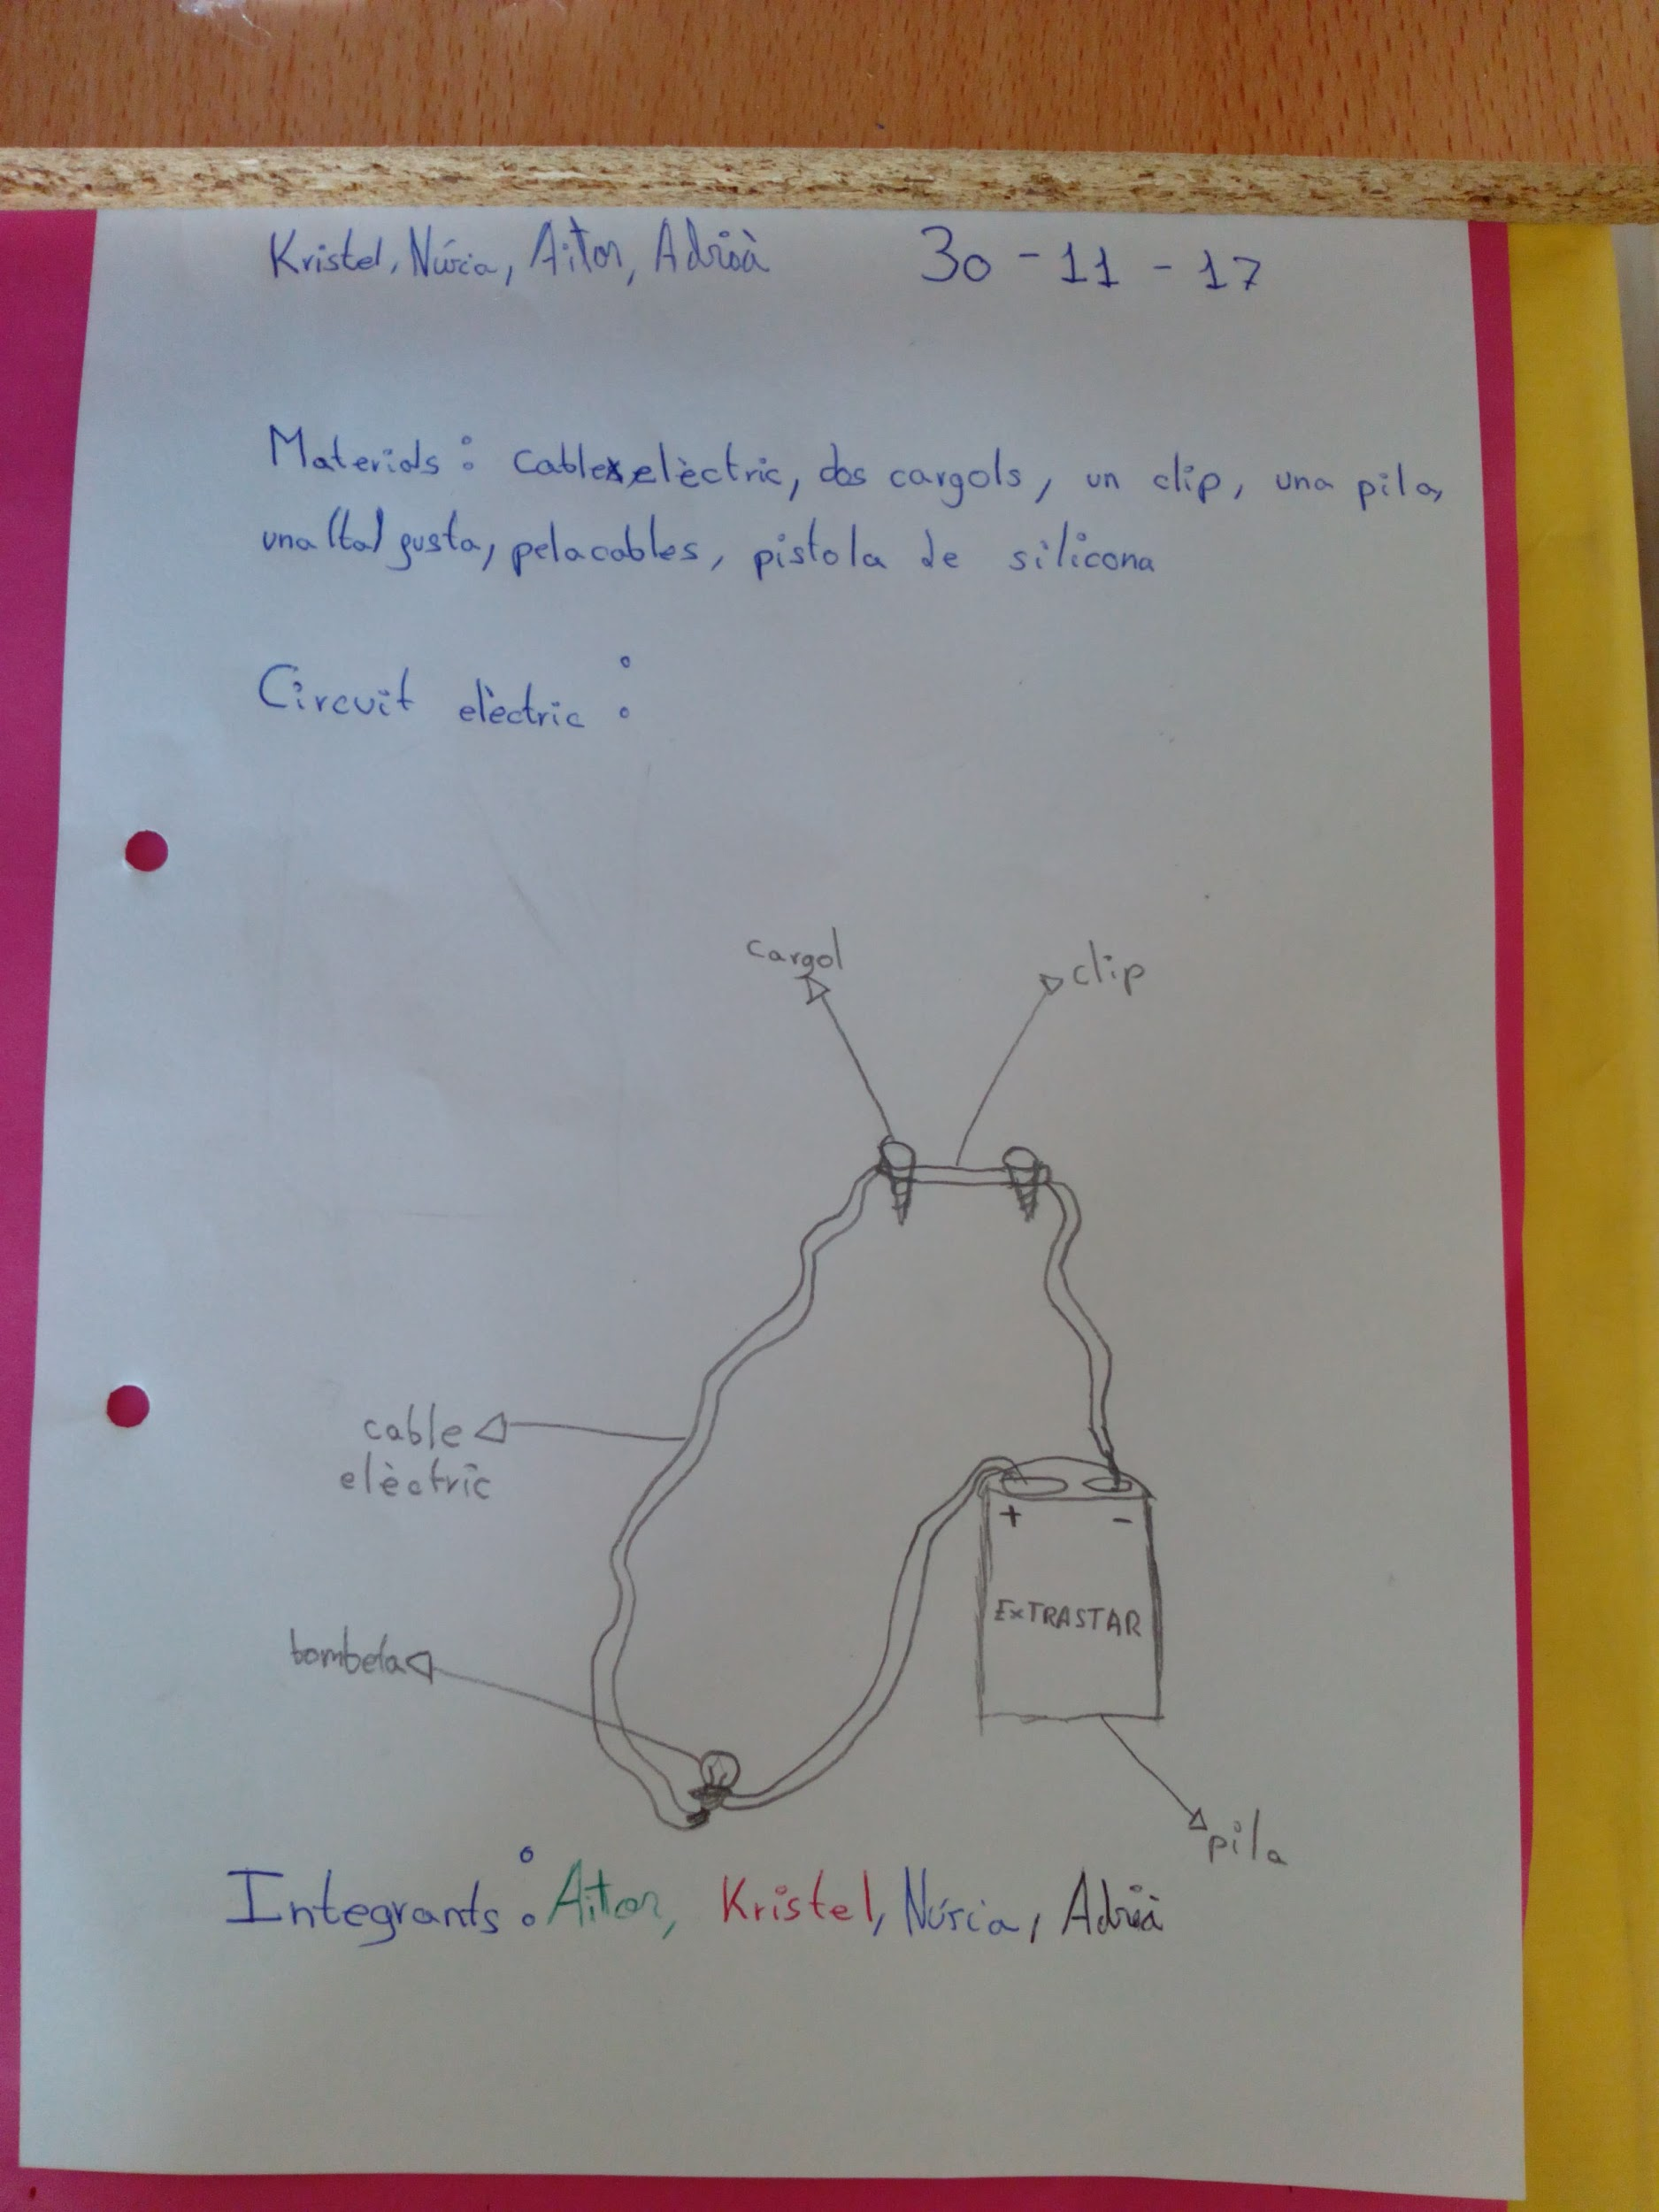 Kristel, Núria, Aitor, Adrià 30-11-17
Materials: cable elèctric, dos cargols, un clip, una pila,
una fusta, pelacables, pistola de silicona
Circuit elèctric:
cargol
clip
cable
elèctric
+ -
EXTRASTAR
bombeta
pila
Integrants: Aitor, Kristel, Núria, Adrià